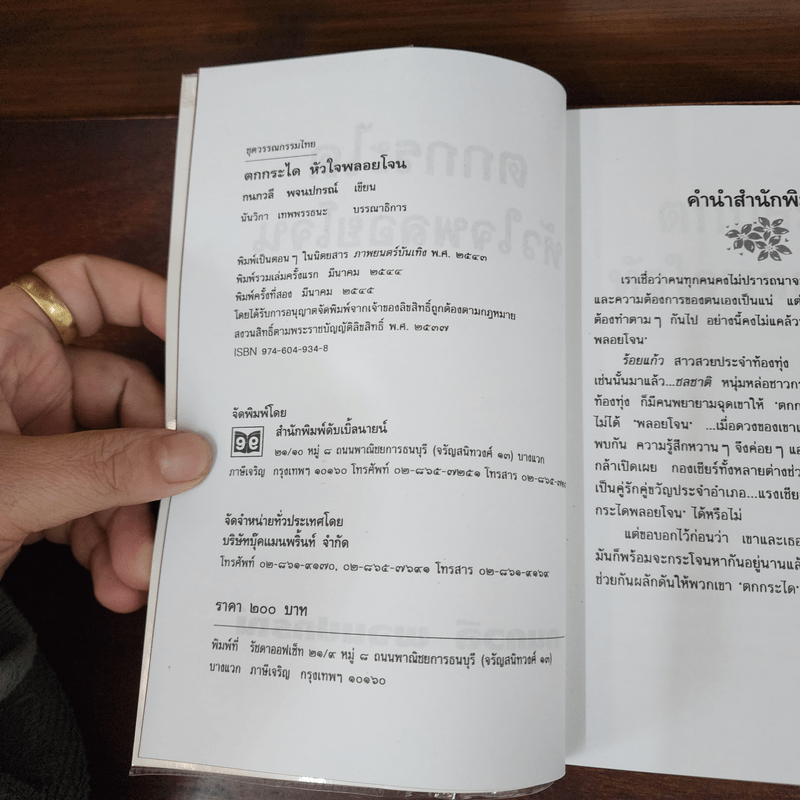 ชุดวรรณกรรมไทย
ตกกระได หัวใจพลอยโจน
กนกวลี พจนปกรณ์ เขียน
นันวิภา เทพพรรธนะ บรรณาธิการ
พิมพ์เป็นตอน ๆ ในนิตยสาร ภาพยนตร์บันเทิง พ.ศ. ๒๕๔๓
พิมพ์รวมเล่มครั้งแรก มีนาคม ๒๕๔๔
พิมพ์ครั้งที่สอง มีนาคม ๒๕๔๕
โดยได้รับการอนุญาตจัดพิมพ์จากเจ้าของลิขสิทธิ์ถูกต้องตามกฎหมาย
สงวนสิทธิ์ตามพระราชบัญญัติลิขสิทธิ์ พ.ศ. ๒๕๓๗
ISBN 974-604-934-8
จัดพิมพ์โดย
๑๑
สำนักพิมพ์ดับเบิ้ลนายน์
๒๑/๑๐ หมู่ ๘ ถนนพาณิชยการธนบุรี (จรัญสนิทวงศ์ ๑๓) บางแวก
ภาษีเจริญ กรุงเทพฯ ๑๐๑๖๐ โทรศัพท์ ๐๒-๘๖๕-๗๒๕๑ โทรสาร ๐๒-๘๖๕-
จัดจำหน่ายทั่วประเทศโดย
บริษัทบุ๊คแมนพริ้นท์ จำกัด
โทรศัพท์ ๐๒-๘๖๑-๙๑๗๐, ๐๒-๘๖๕-๗๖๙๑ โทรสาร ๐๒-๘๖๑-๙๑๖๙
ราคา ๒๐๐ บาท
พิมพ์ที่ รัชดาออฟเซ็ท ๒๑/๙ หมู่ ๘ ถนนพาณิชยการธนบุรี (จรัญสนิทวงศ์ ๑๓)
บางแวก ภาษีเจริญ กรุงเทพฯ ๑๐๑๖๐
คำนำสำนักพิม
เราเชื่อว่าคนทุกคนคงไม่ปรารถนาจ
และความต้องการของตนเองเป็นแน่ แต่
ต้องทำตาม ๆ กันไป อย่างนี้คงไม่แคล้ว
พลอยโจน'
ร้อยแก้ว สาวสวยประจำท้องทุ่ง
เช่นนั้นมาแล้ว...ชลชาติ หนุ่มหล่อชาวก
ท้องทุ่ง ก็มีคนพยายามฉุดเขาให้ 'ตกก
ไม่ได้ 'พลอยโจน' ...เมื่อดวงของเขาเ
พบกัน ความรู้สึกหวาน ๆ จึงค่อย ๆ แอ
กล้าเปิดเผย กองเชียร์ทั้งหลายต่างช่ว
เป็นคู่รักคู่ขวัญประจำอำเภอ...แรงเชีย
กระไดพลอยโจน' ได้หรือไม่
แต่ขอบอกไว้ก่อนว่า เขาและเธอ
มันก็พร้อมจะกระโจนหากันอยู่นานแล้
ช่วยกันผลักดันให้พวกเขา 'ตกกระได'